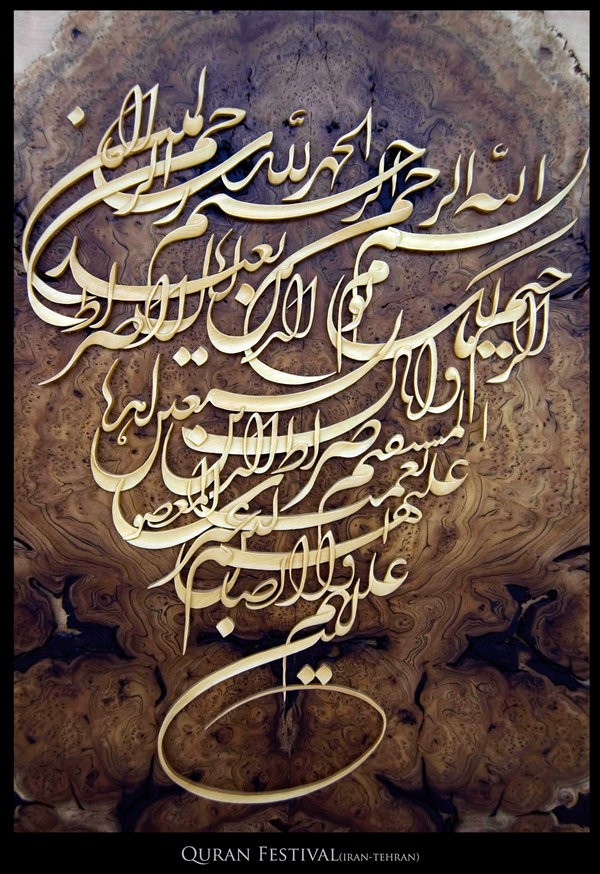 بسم الله الرحمن الرحيم الحمد لله رب العالمين
الرحمن الرحيم مالك يوم الدين اياك نعبد
و اياك نستعين اهدنا الصراط
المستقيم صراط الذين
انعمت عليهم غير المغضوب
عليهم ولا الضالين
QURAN FESTIVAL(IRAN-TEHRAN)